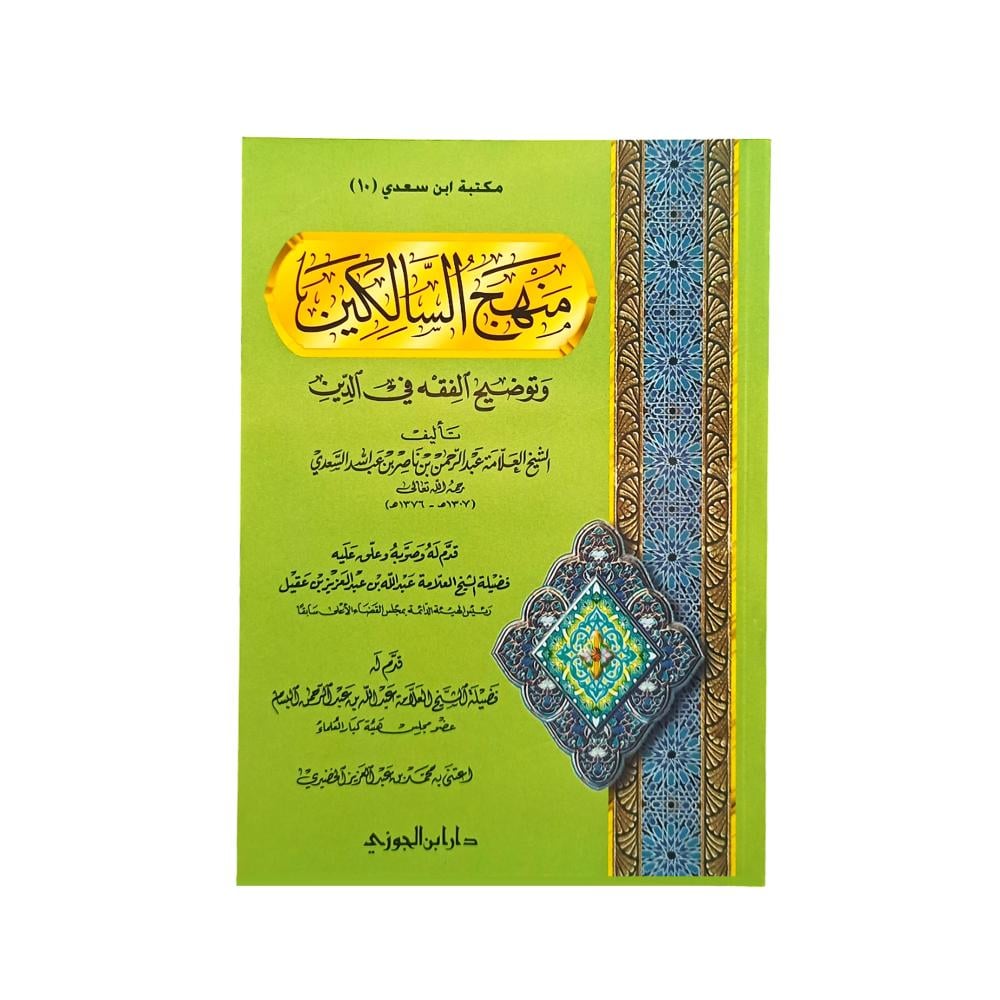 مكتبة ابن سعدي (١٠)
مَنْهَجُ السَّالِكِينَ
وَتوضيح الفِقه في الدِّين
تأليف
الشيخ العلّامة عبد الرحمن بن ناصر بن عبد الله السّعدي
رحمه الله تعالى
(١٣٠٧هـ - ١٣٧٦هـ)
قدّم لهُ وصوّبهُ وعلّق عَليه
فضيلة الشيخ العلامة عبد الله بن عبد العزيز بن عقيل
رئيس الهيئة الدائمة بمجلس القضاء الأعلى سابقًا
قدّم له
فضيلة الشيخ العلامة عبد الله بن عبد الرحمن البسام
عضو مجلس هيئة كبار العلماء
اعتنى به محمد بن عبد العزيز الخضيري
دار ابن الجوزي